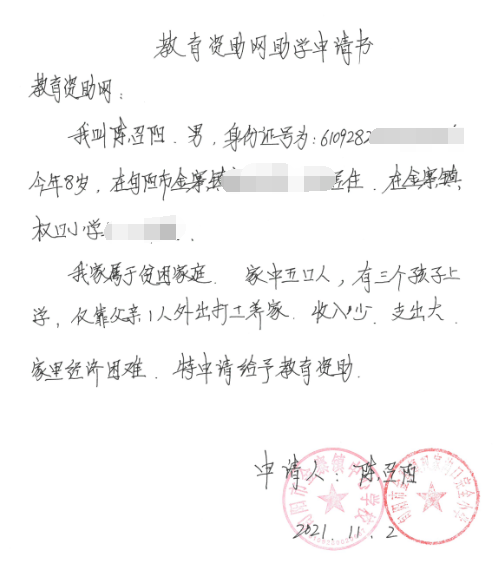 教育资助网助学申请书
教育资助网：
我叫陈召阳．男，身份证号为：6109282
今年8岁，在旬阳市金寨镇 居住．在金寨镇
权口小学
我家属于贫困家庭． 家中五口人，有三个孩子上
学，仅靠父亲1人外出打工养家．收入少．支出大．
家里经济困难．特申请给予教育资助．
申请人：陈召阳
2021．11．2